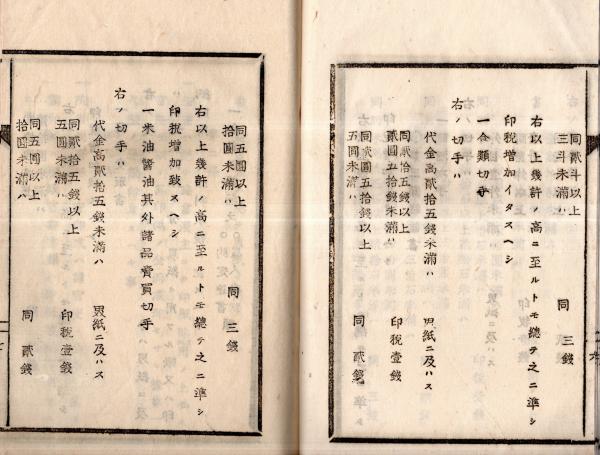 同貳斗以上
三斗未滿ハ 同 三錢
右以上幾許ノ高ニ至ルトモ總テ之ニ準シ
印稅增加イタスヘシ
一金類切手
右ノ切手ハ
代金高貳拾五錢未滿ハ 界紙ニ及ハス
同貳拾五錢以上
貳圓五拾錢未滿ハ 印稅壹錢
同貳圓五拾錢以上
五圓未滿ハ 同 貳錢
同五圓以上
拾圓未滿ハ 同 三錢
右以上幾許ノ高ニ至ルトモ總テ之ニ準シ
印稅增加致スヘシ
一米油醬油其外諸品賣買切手
右ノ切手ハ
代金高貳拾五錢未滿ハ 界紙ニ及ハス
同貳拾五錢以上
五圓未滿ハ 印稅壹錢
同五圓以上
拾圓未滿ハ 同 貳錢